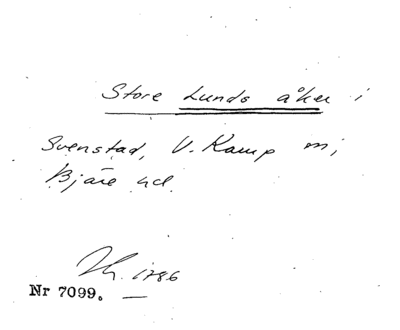 Store Lunds åker i
Svenstad, V. Karup sn,
Bjäre hd.
Lh. 1786
Nr 7099. —